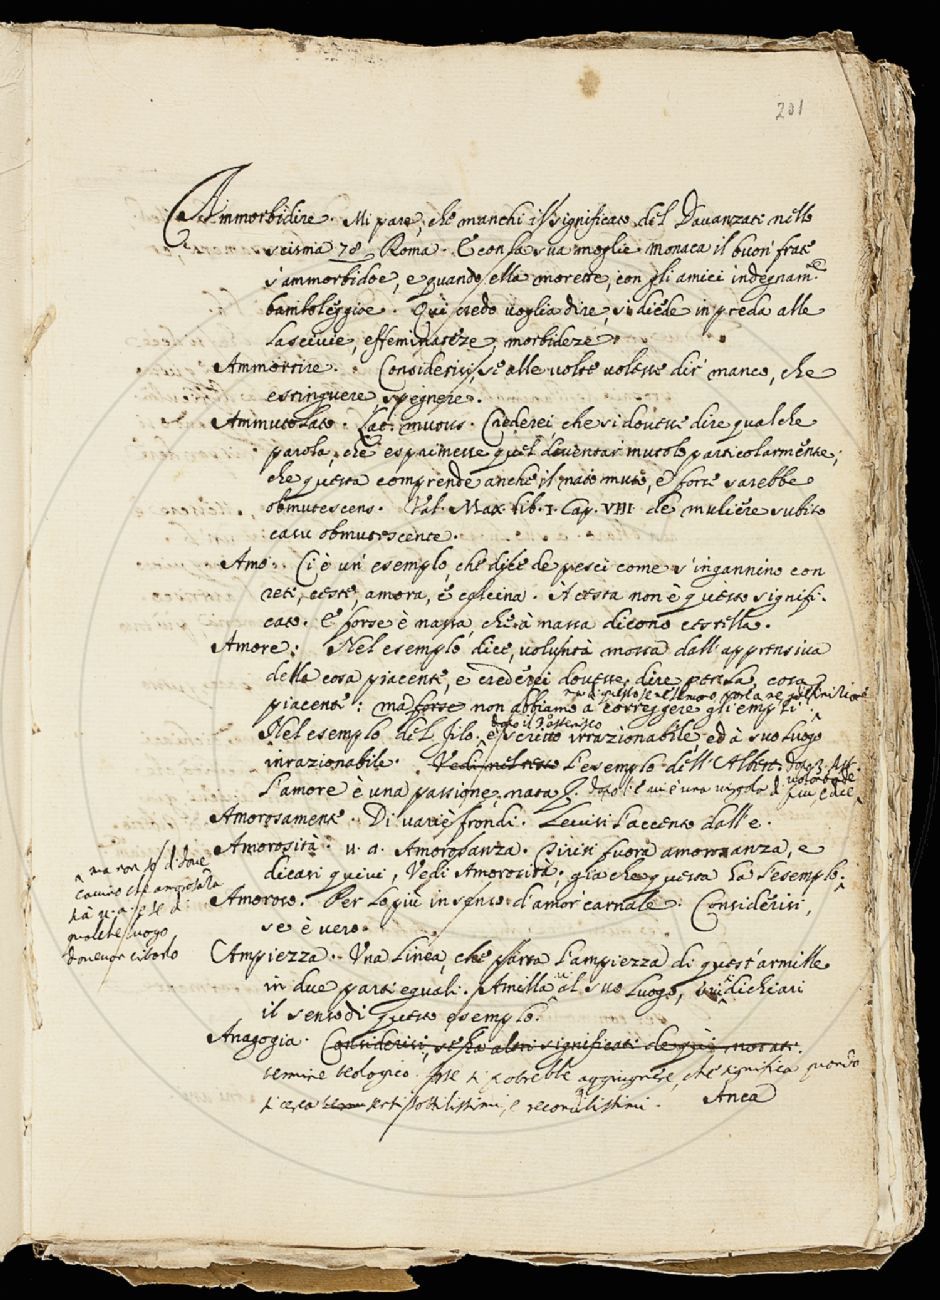 201
Ammorbidire. Mi pare, che manchi il significato del Davanzati nello
scisma 78. Roma. E con la sua moglie monaca il buon frate
s'ammorbidoe, e quando ella morette, con gli amici indegnam.te
bamboleggioe. Qui credo voglia dire, si diede in preda alle
lascivie, effeminateze, morbideze.
Ammortire. Considerisi, se alle volte volesse dir manco, che
estinguere, spegnere.
Ammutolato. Lat. mutus. Crederei, che si dovesse dire qualche
parola, che esprimesse quel doventar mutolo particolarmente,
che questa comprende anche il nato muto, e forse sarebbe
obmutescens. Val. Max. lib. I. Cap. VIII. de muliere subito
casu obmutescente.
Amo. Ci è un esemplo, che dice de pesci come s'ingannino con
reti, ceste, amora, e calcina. A cesta non è questo signifi-
cato. E forse è nassa, che à nassa dicono cestella.
Amore. Nel esemplo dice, voluntà mossa dall'apprensiva
della cosa piacente, e crederei dovesse dire cosa
piacente: ma forse non abbiamo à correggere gli empli.
Nel esemplo del filo. è scritto irrazionabile ed à suo luogo
inrazionabile. Vedi nel l'esemplo dell'Albert. dopo 3.
L'amore è una passione nata dopo vi è una virgola di più e dice
Amorosamente. Di varie frondi. Levisi l'accento dall'e.
Amorosità. v. a. Amorosanza. Tirisi fuora amorosanza, e
dicasi quivi, Vedi Amorosità; già che questa ha l'esemplo.
ma non so di dove
cavino che amorosità
sia v. a. e se di
qualche luogo
donevon citarlo
Amoroso. Per lo più in senso d'amor carnale. Considerisi,
se è vero.
Ampiezza. Una linea, che parta l'ampiezza di quest'armille
in due parti eguali. Armilla al suo luogo, dichiari
il senso di questo esemplo.
Anagogia. Considerisi, se ha altri significati de qui notati.
termine teologico. forse si potrebbe aggiugnere, che significa quando
si cava sensi sottilissimi, e reconditissimi. Anca